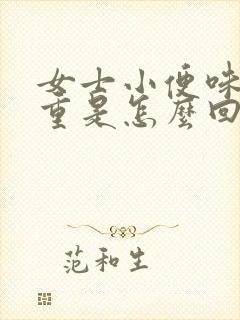 女士小便味
重是怎麼回
范和生